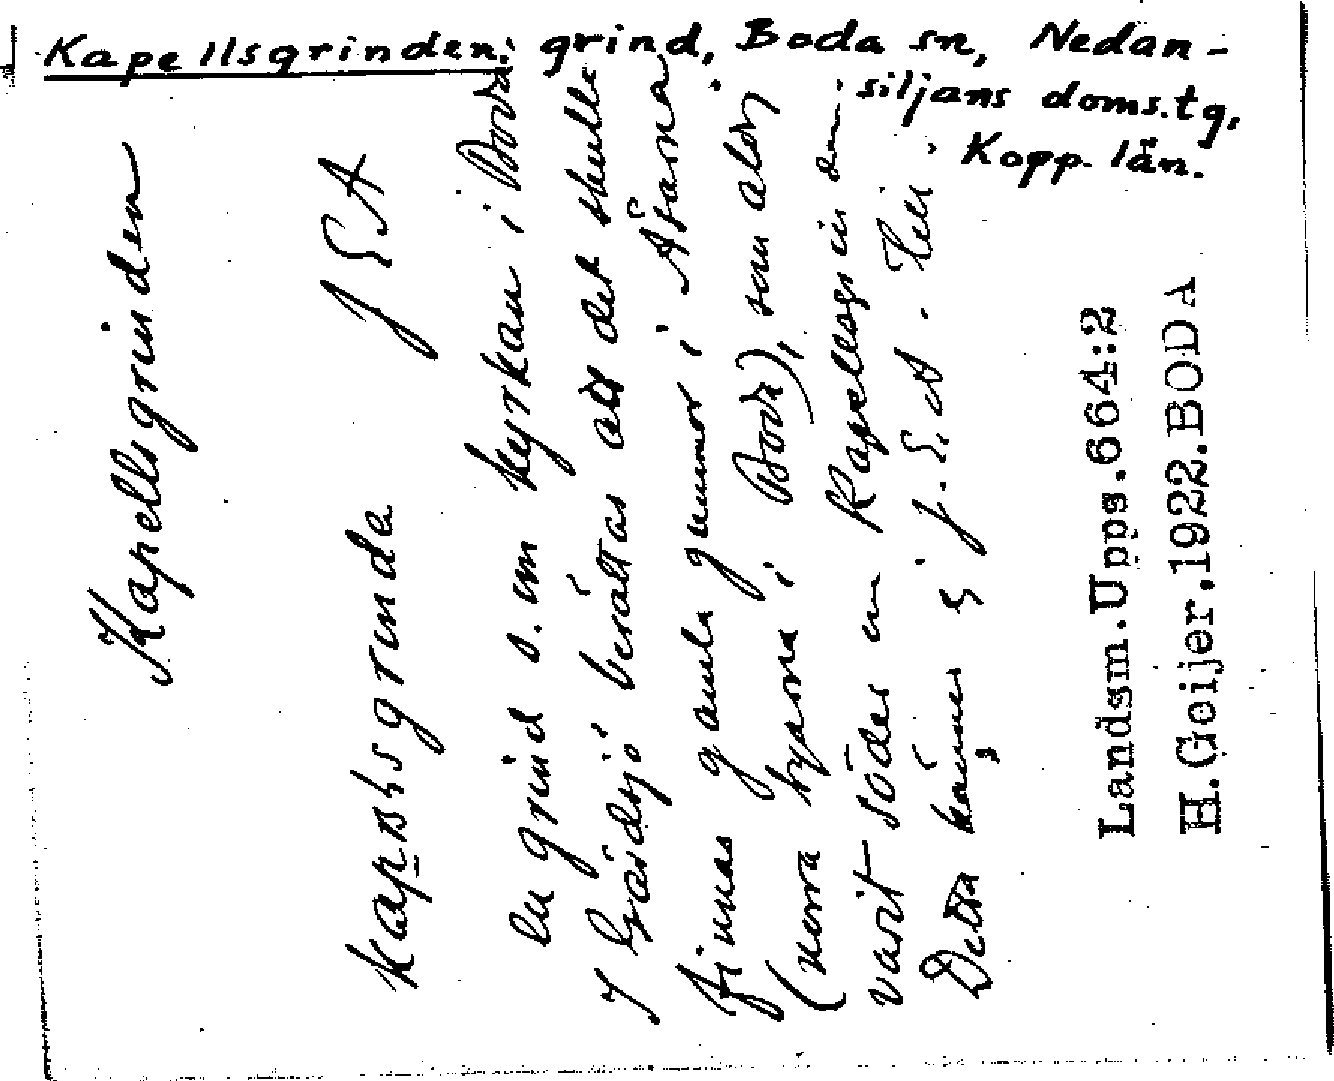 Kapellsgrinden: grind, Boda sn, Nedan-
siljans doms.tg,
Kopp. län.
Kapellsgrinden
J E A
En grind s. om kyrkan i Boda
I Gärdsjö berättas att det skulle
finnas gamla gummor i Ovanå
(norra byarna i Boda), som aldrig
varit söder om Kapellsgrinden
Detta känner ej J. E. A. till
Landsm. Upps. 664:2
H. Geijer. 1922. BODA